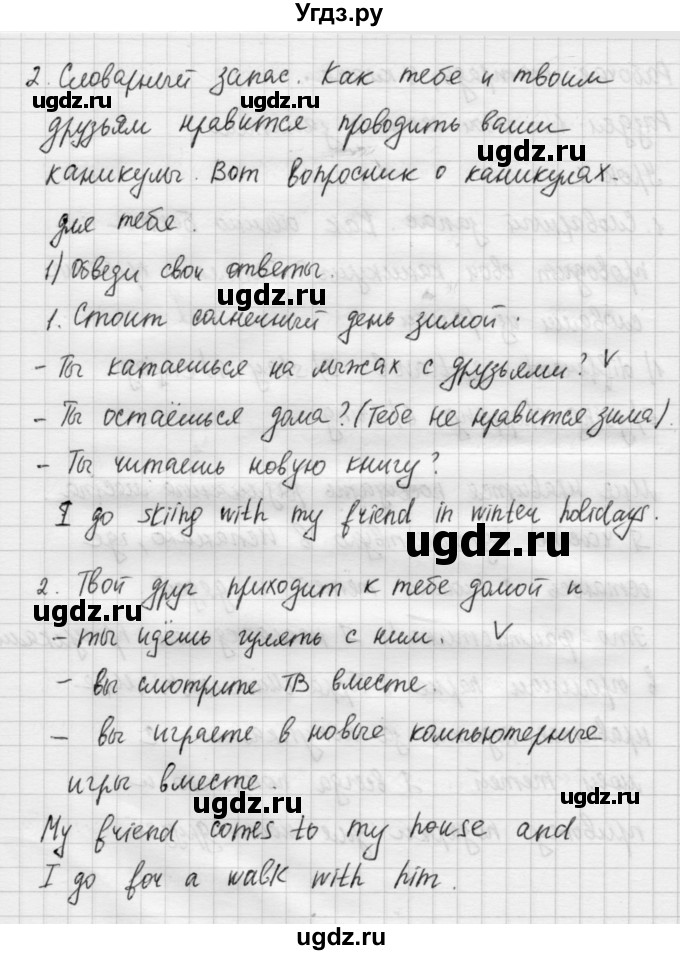 Угдз.ру
2. Словарный запас. Как тебе и твоим
ugdz.ru ugdz.ru
друзьям нравится проводить ваши
ugdz.ru
каникулы. Вот вопросник о каникулах
для тебе.
1) Обведи свои ответы.
ugdz.ru
1. Стоит солнечный день зимой.
- Ты катаешься на лыжах с друзьями? ✓
- Ты остаёшься дома? (Тебе не нравится зима).
- Ты читаешь новую книгу?
I go skiing with my friend in winter holidays.
ugdz.ru
2. Твой друг приходит к тебе домой и
ugdz.ru
- ты идёшь гулять с ним. ✓
- вы смотрите ТВ вместе.
- вы играете в новые компьютерные
игры вместе.
ugdz.ru ugdz.ru
My friend comes to my house and
I go for a walk with him.
ugdz.ru